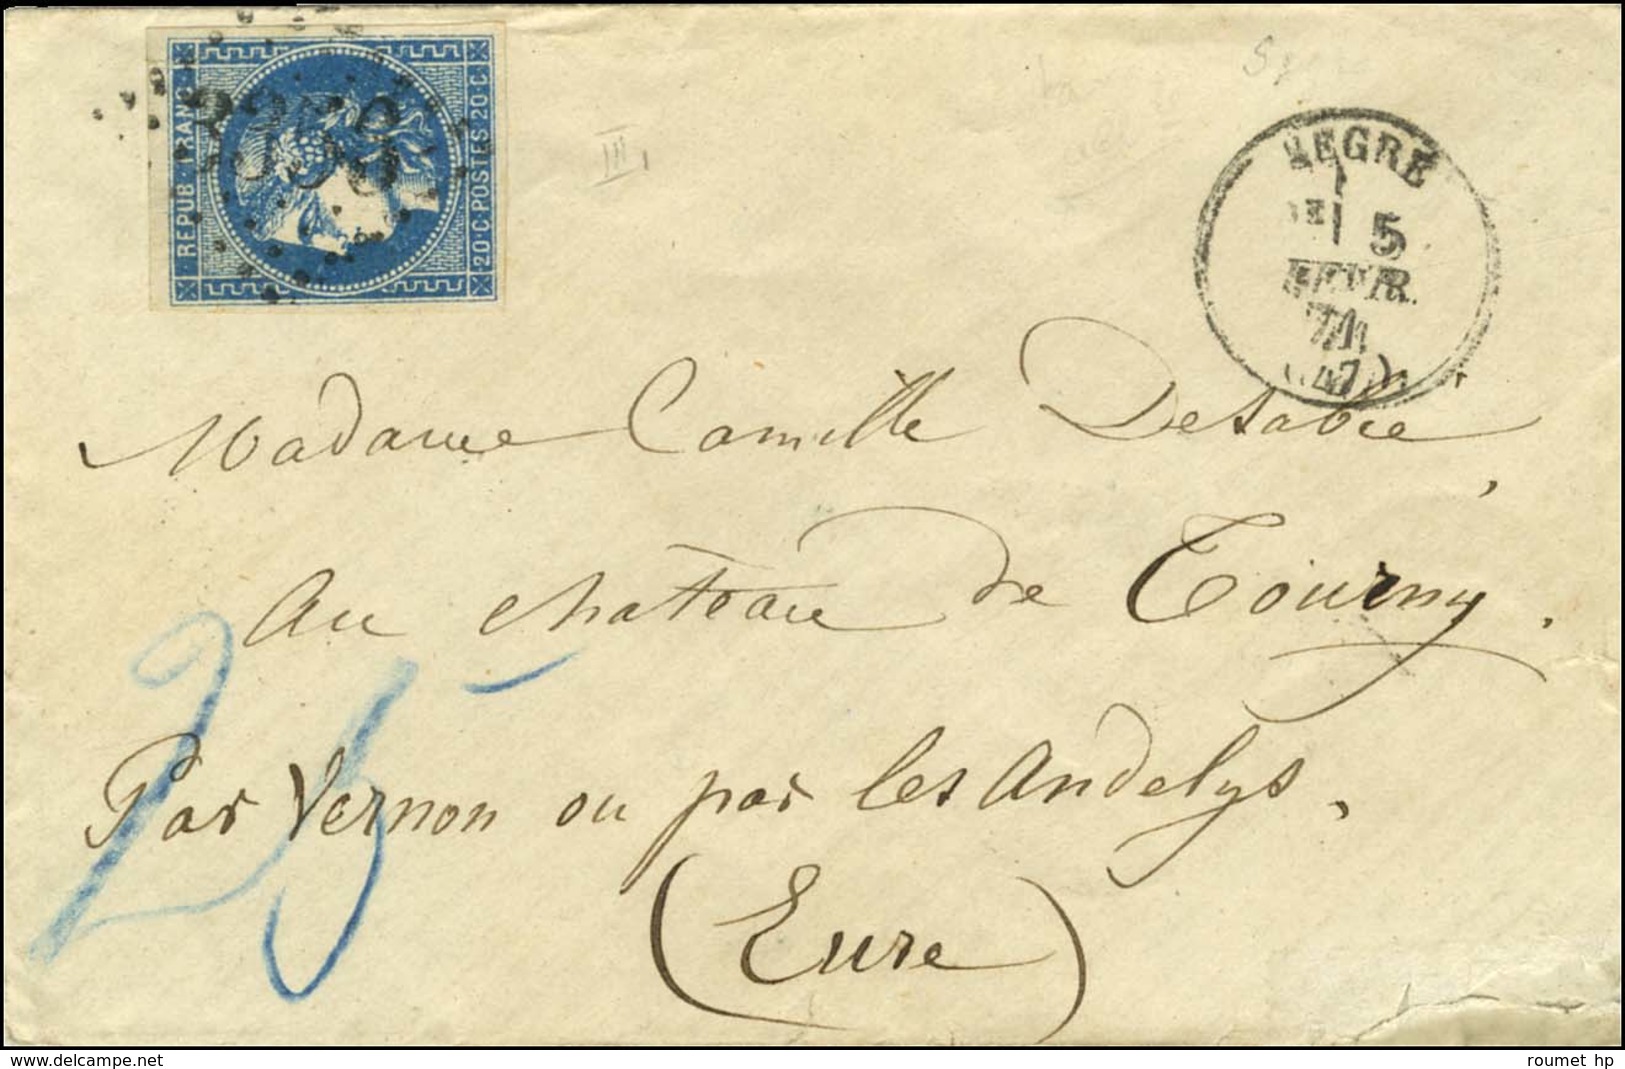 REPUB·FRANC·
20·C·POSTES·20·C
III
SEGRÉ
5
FEVR.
71
(47)
Madame Camille Desabie,
Au château de Tourny.
Par Vernon ou par les Andelys.
(Eure)
25
www.delcampe.net
roumet hp